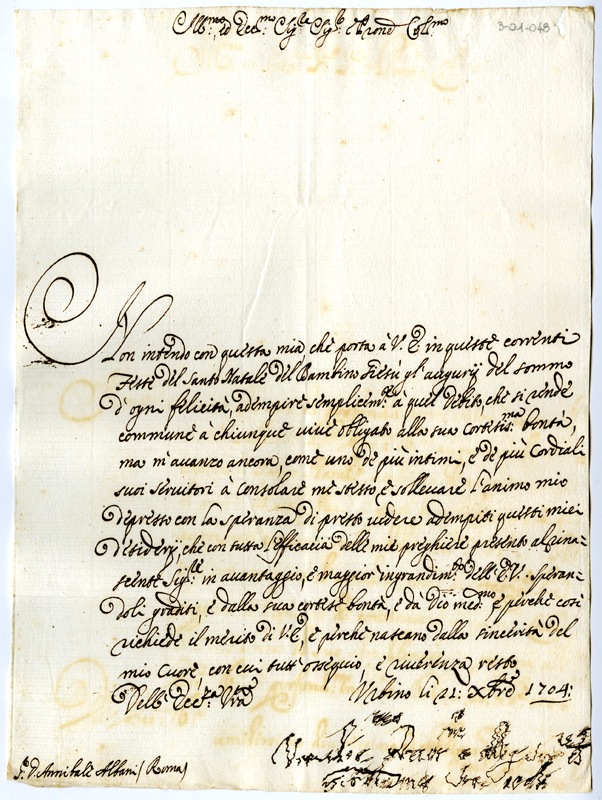 Ill.mo, ed Ecc.mo Sig.re Sig.r e Pron Col.mo
3-01-048
Non intendo con questa mia, che porta à V. E. in queste correnti
Feste del Santo Natale del Bambino Giesù gl'augurij del sommo
d'ogni felicità, adempire semplicem.te à quel debito, che si rende
commune à chiunque vive obligato alla sua cortesis.ma bontà,
ma m'avanzo ancora, come uno de più intimi, e de più cordiali
suoi servitori à consolare me stesso, e sollevare l'animo mio
depresso con la speranza di presto vedere adempiti questi miei
desiderij, che con tutta l'efficacia delle mie preghiere presento al rina-
scente Sig.re in avantaggio, e maggior ingrandim.to dell'E. V. Speran-
doli graditi, e dalla sua cortese bontà, e da Dio med.mo e perche così
richiede il merito di V. E., e perche nascano dalla sincerità del
mio Cuore, con cui tutt'ossequio, e riverenza resto
Dell'Ecc.za V.ra Urbino li 21: Xbre 1704:
S.r D. Annibale Albani / Roma /